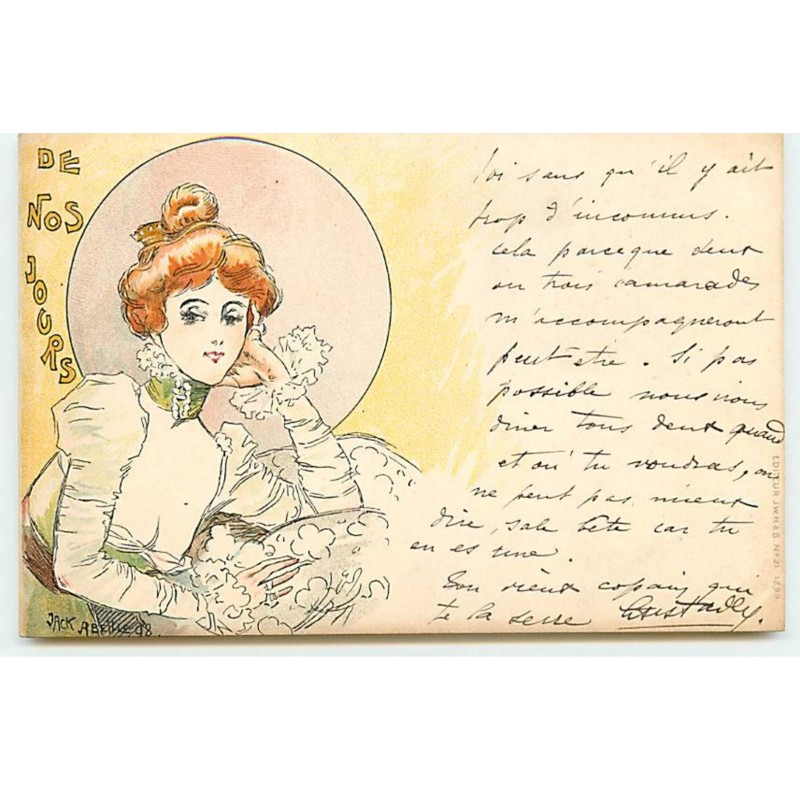 DE
NOS
JOURS
toi sans qu'il y ait
trop d'inconnus.
Cela parceque deux
ou trois camarades
m'accompagneront
peut etre. Si pas
possible nous irons
diner tous deux quand
et où tu voudras, on
ne peut pas mieux
dire, sale bête car tu
en es une.
Ton vieux copain qui
te la serre
JACK ABEILLÉ 98.
EDITEUR J.W.H&B. No 21